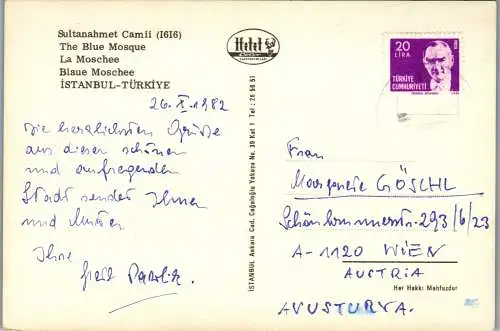 Sultanahmet Camii (1616)
The Blue Mosque
La Moschee
Blaue Moschee
İSTANBUL-TÜRKİYE
Hitit
20
LIRA
TÜRKİYE
CUMHURİYETİ
26. X. 1982
Die herzlichsten Grüße
aus dieser schönen
und aufregenden
Stadt sendet Ihnen
und Mutter
Ihre
İSTANBUL Ankara Cad. Cağaloğlu Yokuşu No. 30 Kat 1 Tel : 26 56 51
Frau
Margarete GÖSCHL
Schönbrunnerstr. 293/6/23
A-1120 WIEN
AUSTRIA
Her Hakkı Mahfuzdur
AVUSTURYA.